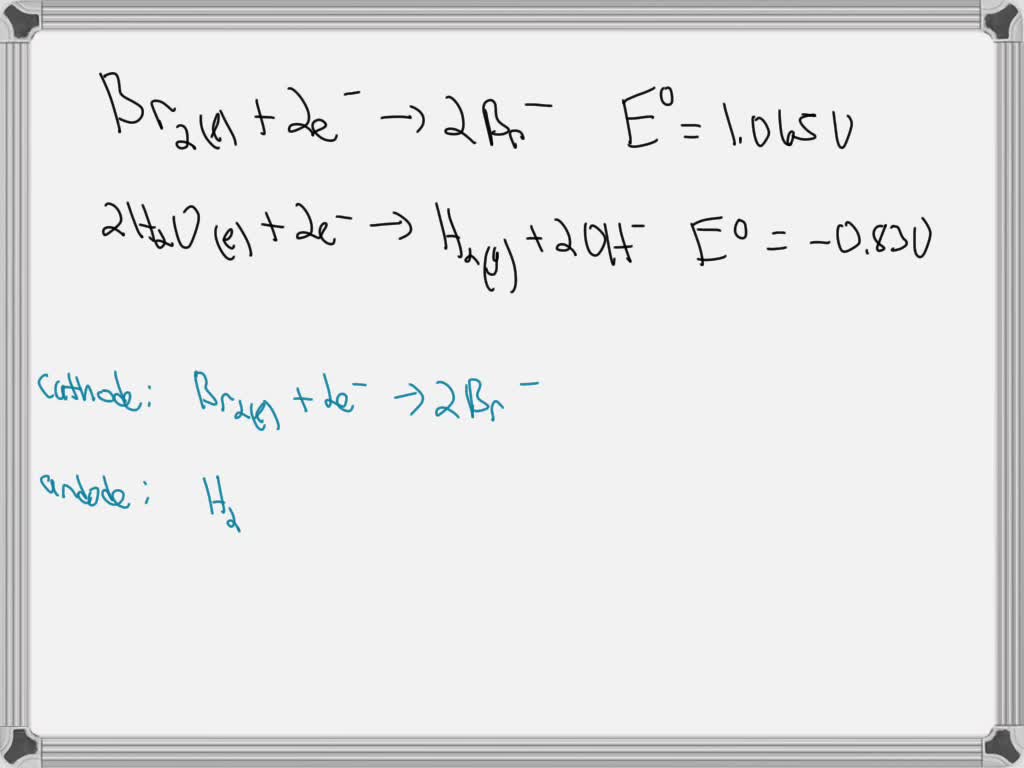 Br₂(l) + 2e⁻ → 2Br⁻ E⁰ = 1.065V
2H₂O(l) + 2e⁻ → H₂(g) + 2OH⁻ E⁰ = -0.83V
cathode: Br₂(l) + 2e⁻ → 2Br⁻
andode: H₂